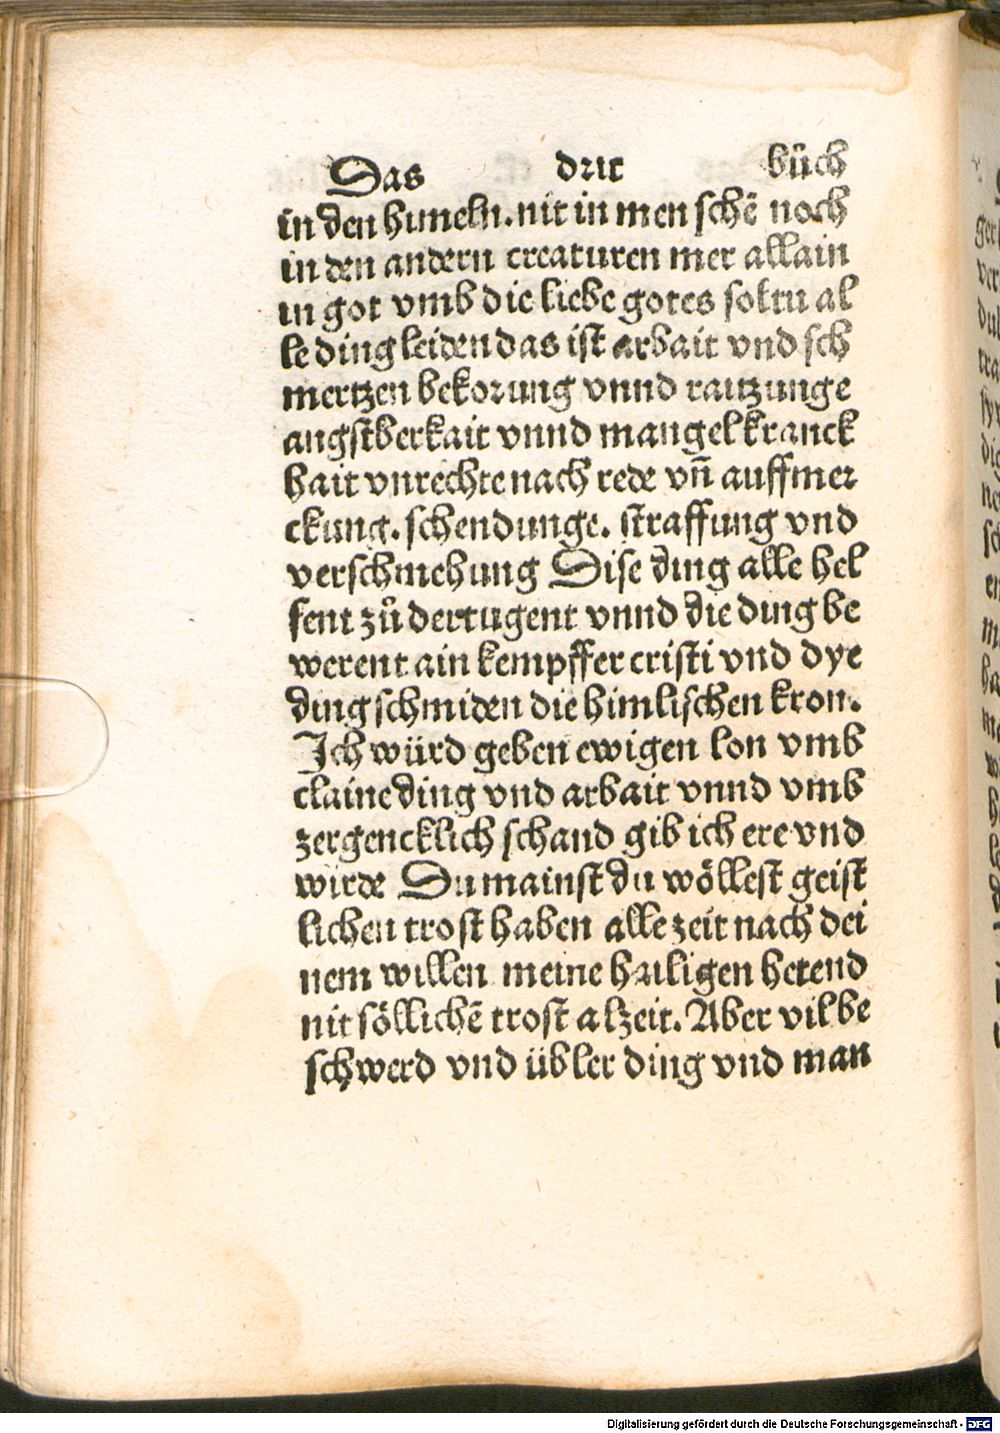 Das drit bůch
in den himeln. nit in men schē noch
in den andern creaturen mer allain
in got vmb die liebe gotes soltu al
le ding leiden das ist arbait vnd sch
mertzen bekorung vnnd raitzunge
angstberkait vnnd mangel kranck
hait vnrechte nach rede vn̄ auffmer
ckung. schendunge. straffung vnd
verschmehung Dise ding alle hel
fent zů der tugent vnnd die ding be
werent ain kempffer cristi vnd dye
ding schmiden die himlischen kron.
Ich würd geben ewigen lon vmb
claine ding vnd arbait vnnd vmb
zergencklich schand gib ich ere vnd
wirde Du mainst du wöllest geist
lichen trost haben alle zeit nach dei
nem willen meine hailigen hetend
nit söllichē trost alzeit. Aber vil be
schwerd vnd übler ding vnd man
Digitalisierung gefördert durch die Deutsche Forschungsgemeinschaft - DFG